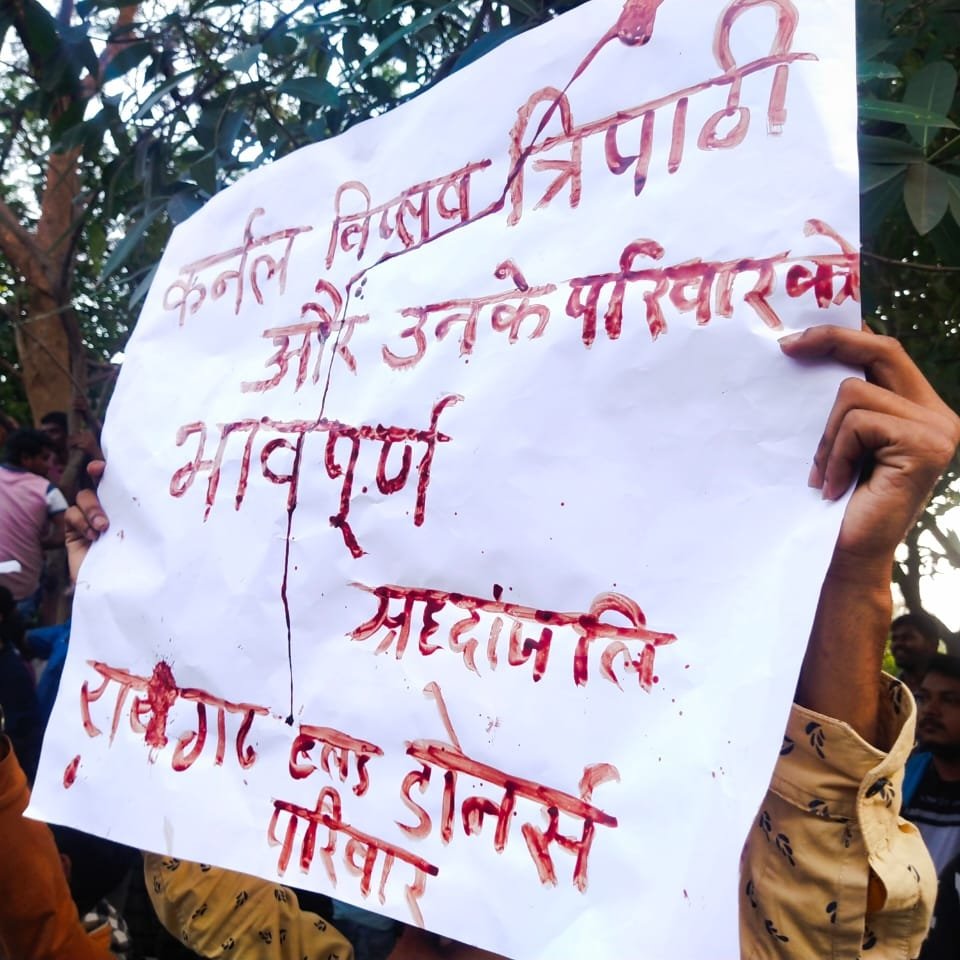 कर्नल विप्लव त्रिपाठी
और उनके परिवार को
भावपूर्ण
श्रद्दांजलि
रायगढ ब्लड डोनर्स
परिवार